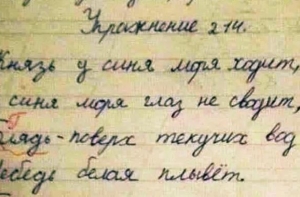 Упражнение 214.
Князь у синя моря ходит,
синя моря глаз не сводит,
Глядь - поверх текучих вод
Лебедь белая плывёт.